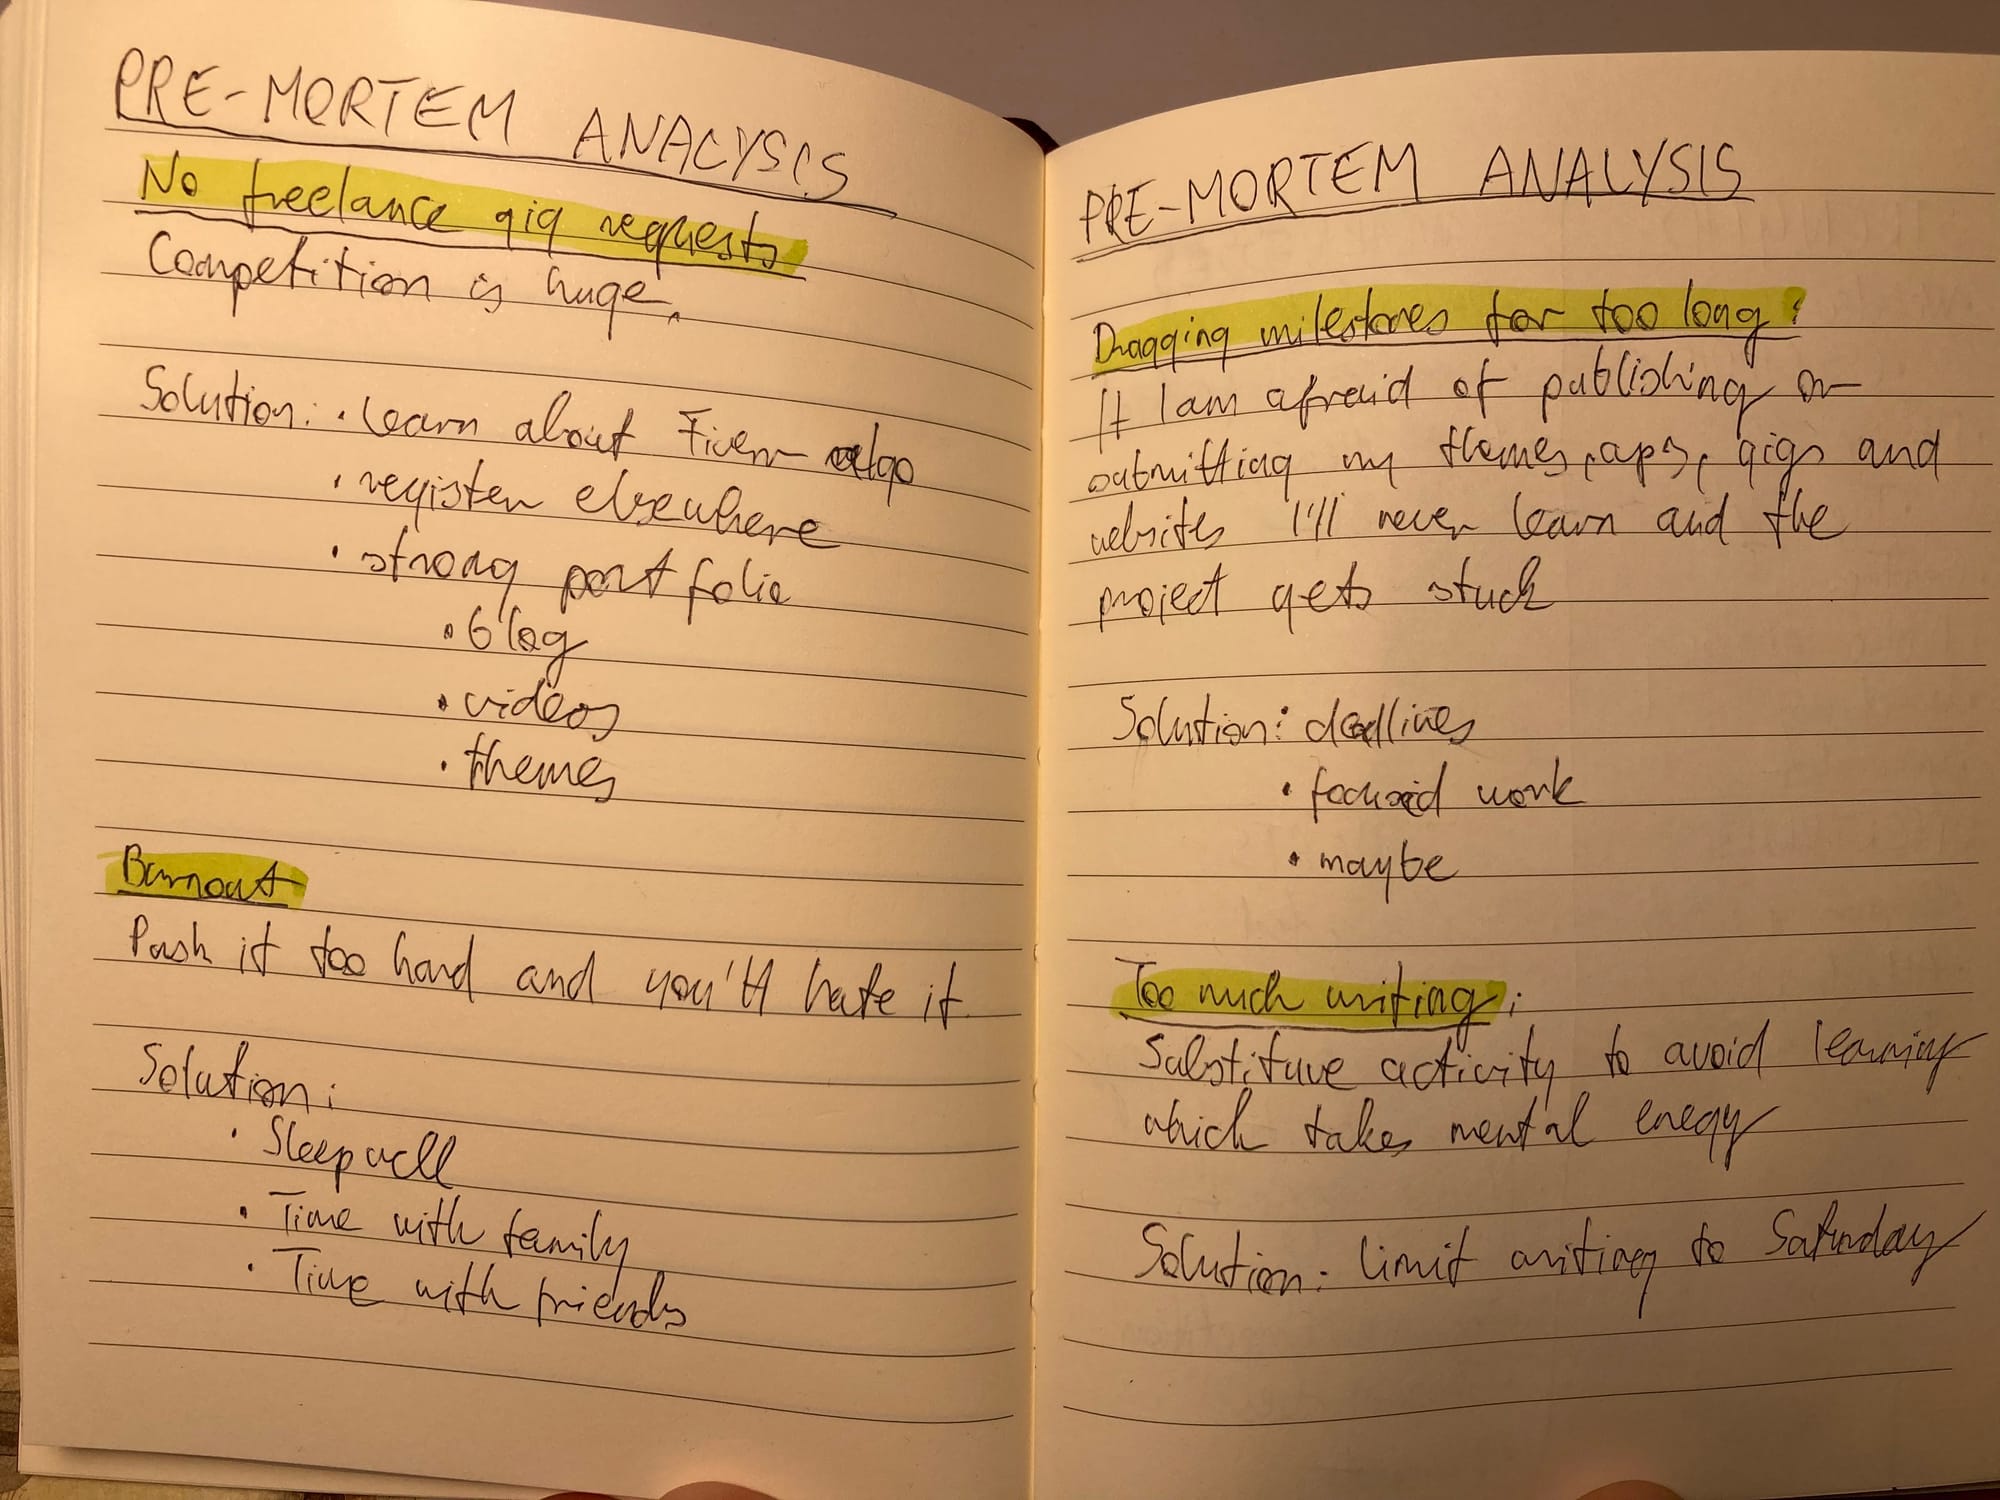 PRE-MORTEM ANALYSIS
No freelance gig requests
Competition is huge.
Solution: · learn about Fiverr algo
· register elsewhere
· strong portfolio
· blog
· videos
· themes
Burnout
Push it too hard and you'll hate it.
Solution:
· Sleep well
· Time with family
· Time with friends
PRE-MORTEM ANALYSIS
Dragging milestones for too long:
If I am afraid of publishing or
submitting my themes, aps, gigs and
websites I'll never learn and the
project gets stuck
Solution: deadlines
· focused work
· maybe
Too much writing:
Substitute activity to avoid learning
which takes mental enegy
Solution: limit writing to Saturday